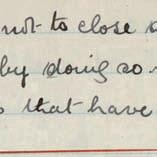 not to close
by doing so
that have